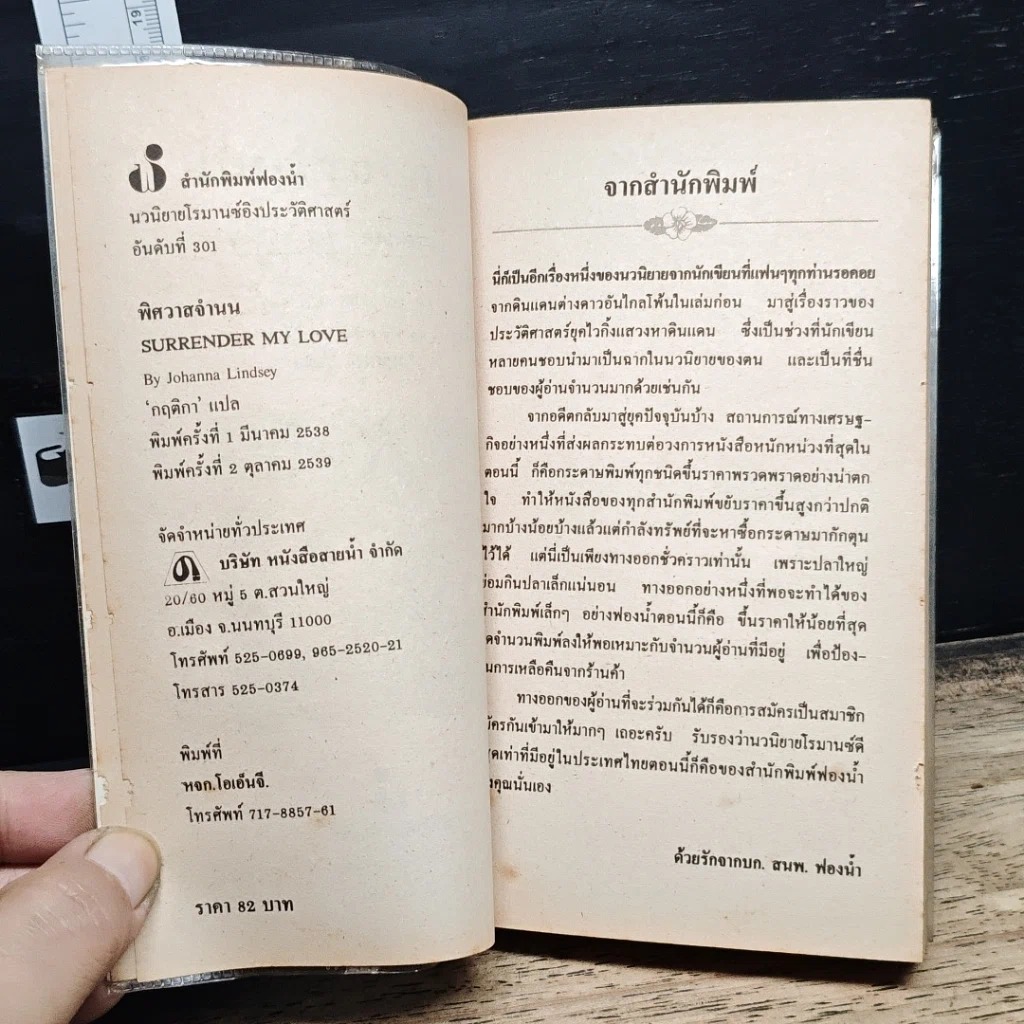 19
สำนักพิมพ์ฟองน้ำ
นวนิยายโรมานซ์อิงประวัติศาสตร์
อันดับที่ 301
พิศวาสจำนน
SURRENDER MY LOVE
By Johanna Lindsey
‘กฤติกา’ แปล
พิมพ์ครั้งที่ 1 มีนาคม 2538
พิมพ์ครั้งที่ 2 ตุลาคม 2539
จัดจำหน่ายทั่วประเทศ
บริษัท หนังสือสายน้ำ จำกัด
20/60 หมู่ 5 ต.สวนใหญ่
อ.เมือง จ.นนทบุรี 11000
โทรศัพท์ 525-0699, 965-2520-21
โทรสาร 525-0374
พิมพ์ที่
หจก.โอเอ็นจี.
โทรศัพท์ 717-8857-61
ราคา 82 บาท
จากสำนักพิมพ์
นี่ก็เป็นอีกเรื่องหนึ่งของนวนิยายจากนักเขียนที่แฟนๆทุกท่านรอคอย
จากดินแดนต่างดาวอันไกลโพ้นในเล่มก่อน มาสู่เรื่องราวของ
ประวัติศาสตร์ยุคไวกิ้งแสวงหาดินแดน ซึ่งเป็นช่วงที่นักเขียน
หลายคนชอบนำมาเป็นฉากในนวนิยายของตน และเป็นที่ชื่น
ชอบของผู้อ่านจำนวนมากด้วยเช่นกัน
จากอดีตกลับมาสู่ยุคปัจจุบันบ้าง สถานการณ์ทางเศรษฐ-
กิจอย่างหนึ่งที่ส่งผลกระทบต่อวงการหนังสือหนักหน่วงที่สุดใน
ตอนนี้ ก็คือกระดาษพิมพ์ทุกชนิดขึ้นราคาพรวดพราดอย่างน่าตก
ใจ ทำให้หนังสือของทุกสำนักพิมพ์ขยับราคาขึ้นสูงกว่าปกติ
มากบ้างน้อยบ้างแล้วแต่กำลังทรัพย์ที่จะหาซื้อกระดาษมากักตุน
ไว้ได้ แต่นี่เป็นเพียงทางออกชั่วคราวเท่านั้น เพราะปลาใหญ่
ย่อมกินปลาเล็กแน่นอน ทางออกอย่างหนึ่งที่พอจะทำได้ของ
สำนักพิมพ์เล็กๆ อย่างฟองน้ำตอนนี้ก็คือ ขึ้นราคาให้น้อยที่สุด
ดจำนวนพิมพ์ลงให้พอเหมาะกับจำนวนผู้อ่านที่มีอยู่ เพื่อป้อง-
นการเหลือคืนจากร้านค้า
ทางออกของผู้อ่านที่จะร่วมกันได้ก็คือการสมัครเป็นสมาชิก
มัครกันเข้ามาให้มากๆ เถอะครับ รับรองว่านวนิยายโรมานซ์ดี
ดเท่าที่มีอยู่ในประเทศไทยตอนนี้ก็คือของสำนักพิมพ์ฟองน้ำ
งคุณนั่นเอง
ด้วยรักจากบก. สนพ. ฟองน้ำ